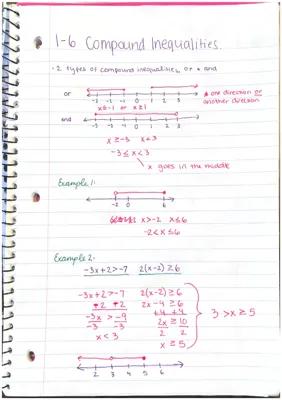 1-6 Compound Inequalities.
· 2 types of compound inequalities, or + and
or
-3 -2 -1 0 1 2 3
x≤-1 or x≥1
* one direction or another direction
and
-3 -2 -1 0 1 2 3
x ≥ -3 x < 3
-3 ≤ x < 3
x goes in the middle
Example 1:
-2 0 6
x > -2 x ≤ 6
-2 < x ≤ 6
Example 2:
-3x+2>-7 2(x-2) ≥ 6
-3x+2>-7 2(x-2) ≥ 6
-2 -2 2x-4 ≥ 6
-3x > -9 +4 +4
-3 -3 2x ≥ 10
2 2
x < 3 x ≥ 5
3 > x ≥ 5
2 3 4 5 6